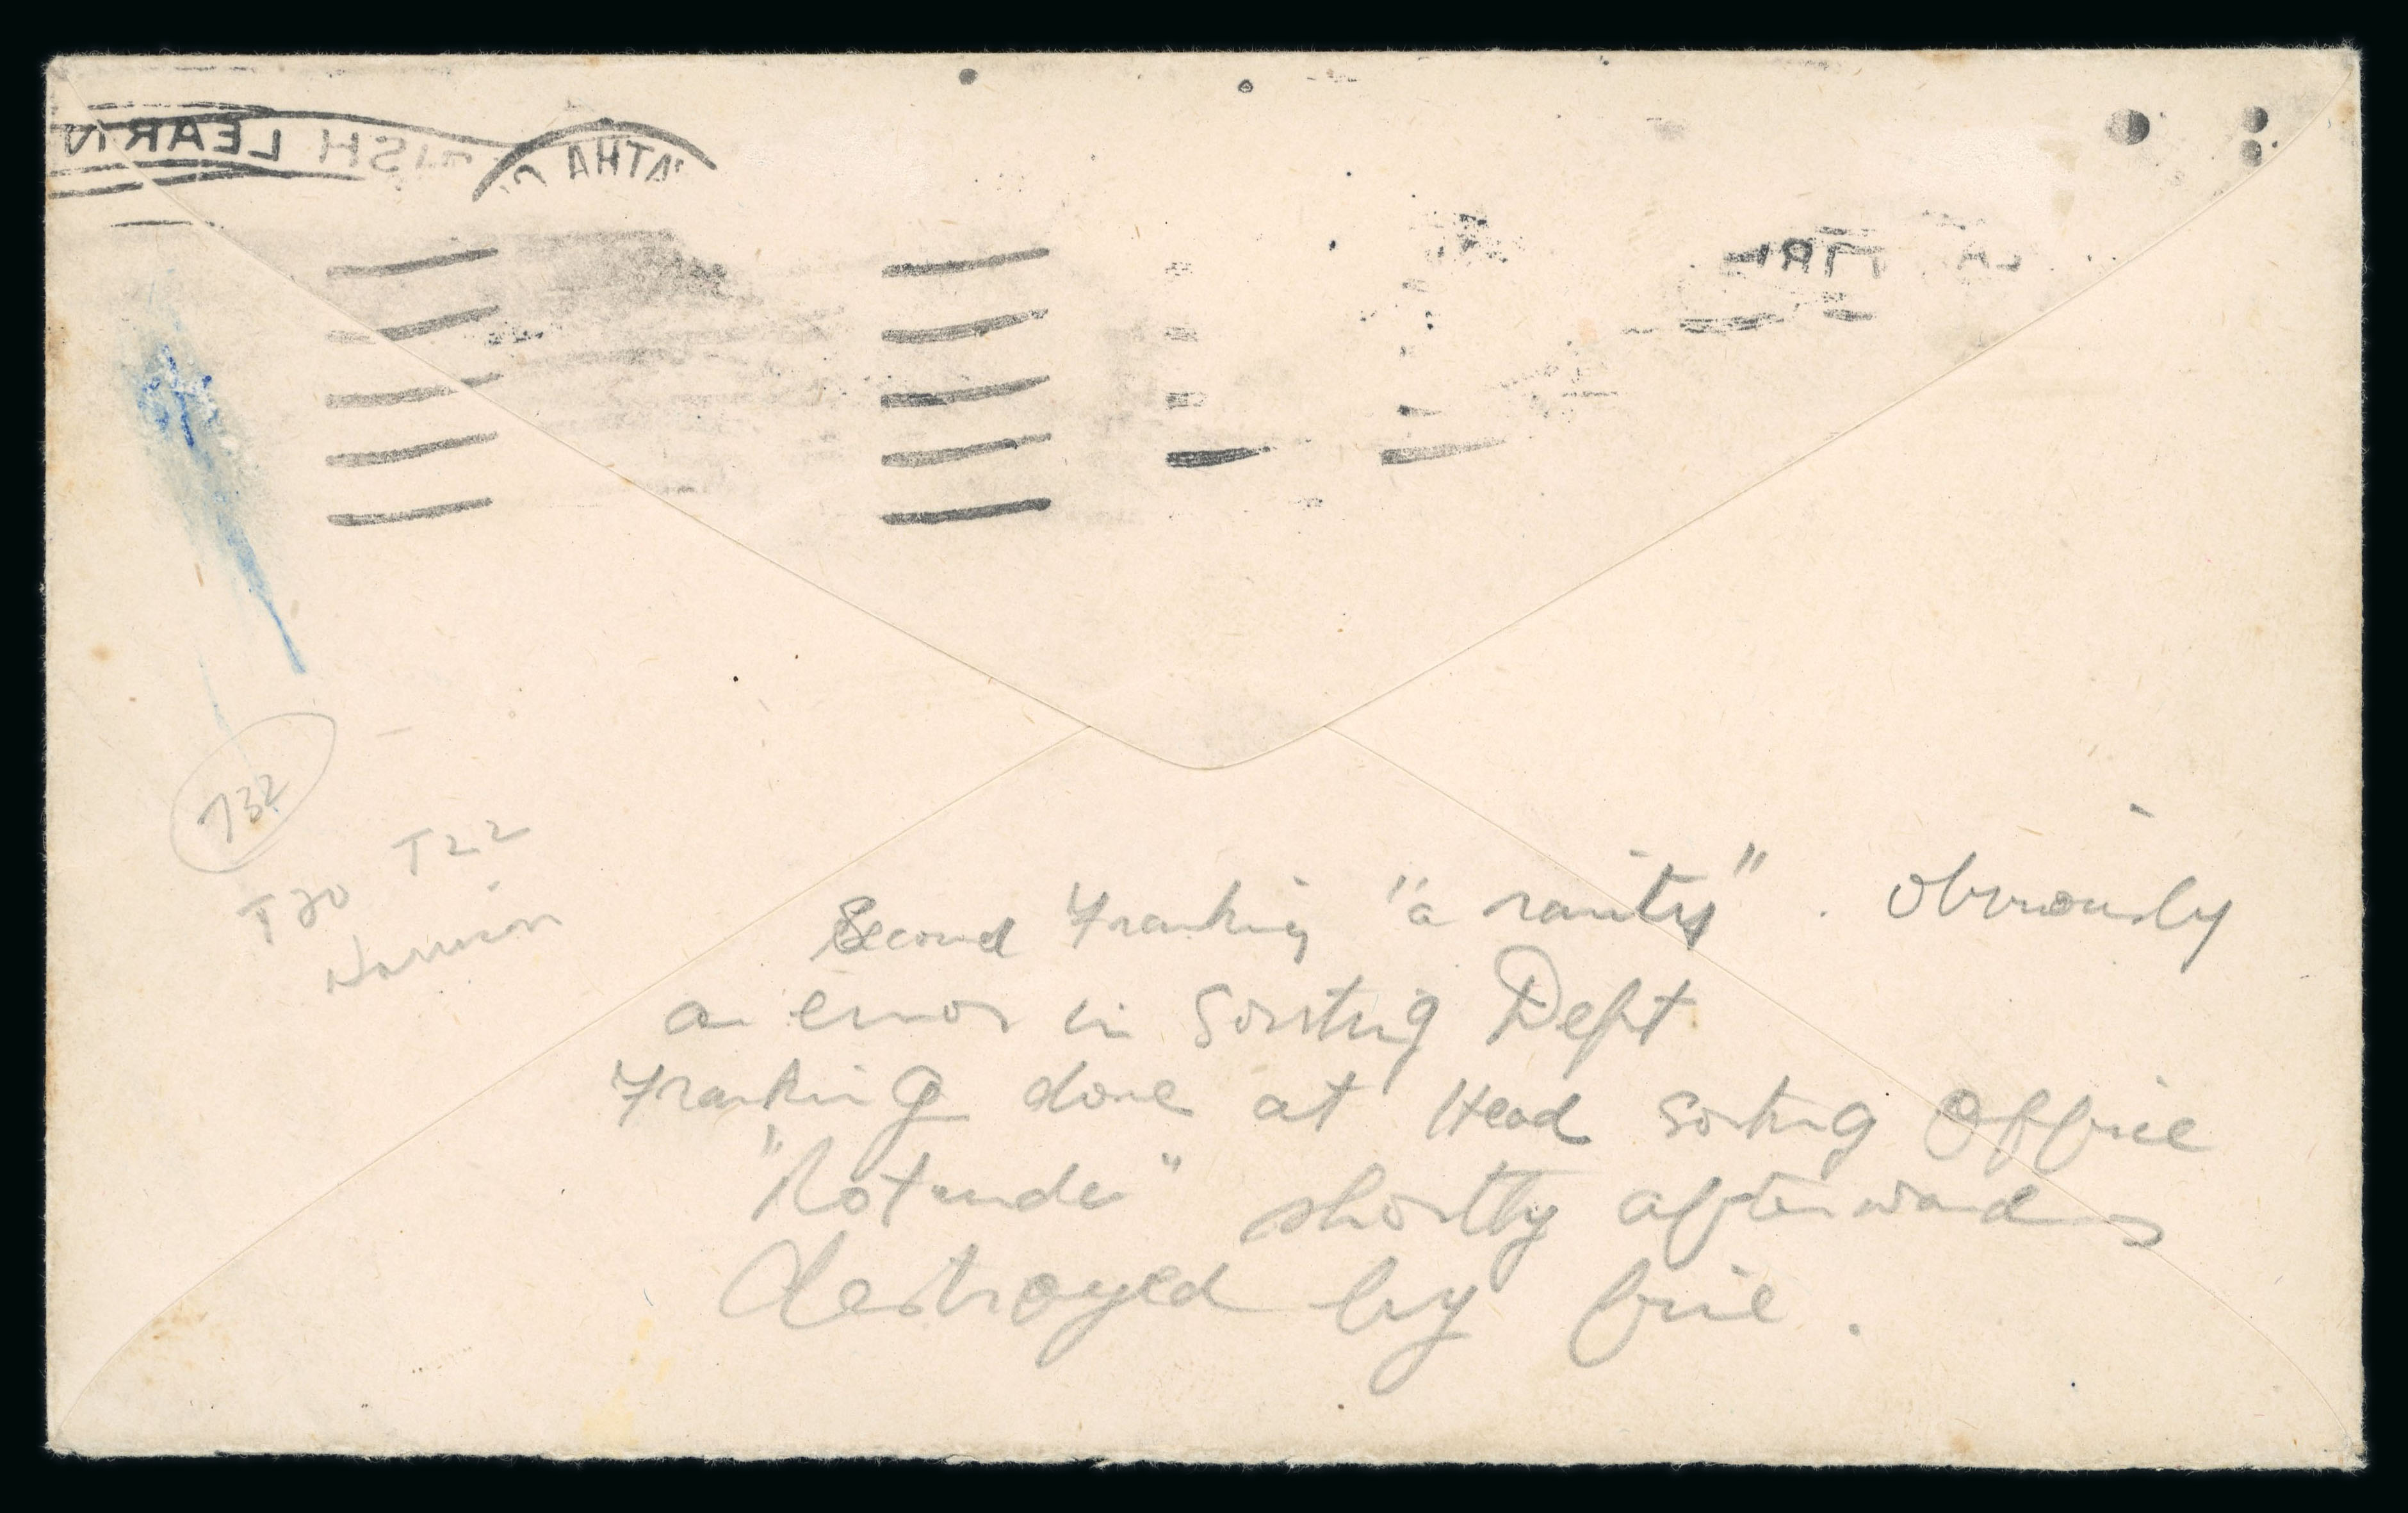 LEARN
ISH
ATHA
732
T20 T22
Harrison
Second Franking "a rarity". Obviously
an error in Sorting Dept
Franking done at Head Sorting Office
"Rotunda" shortly afterwards
destroyed by fire.